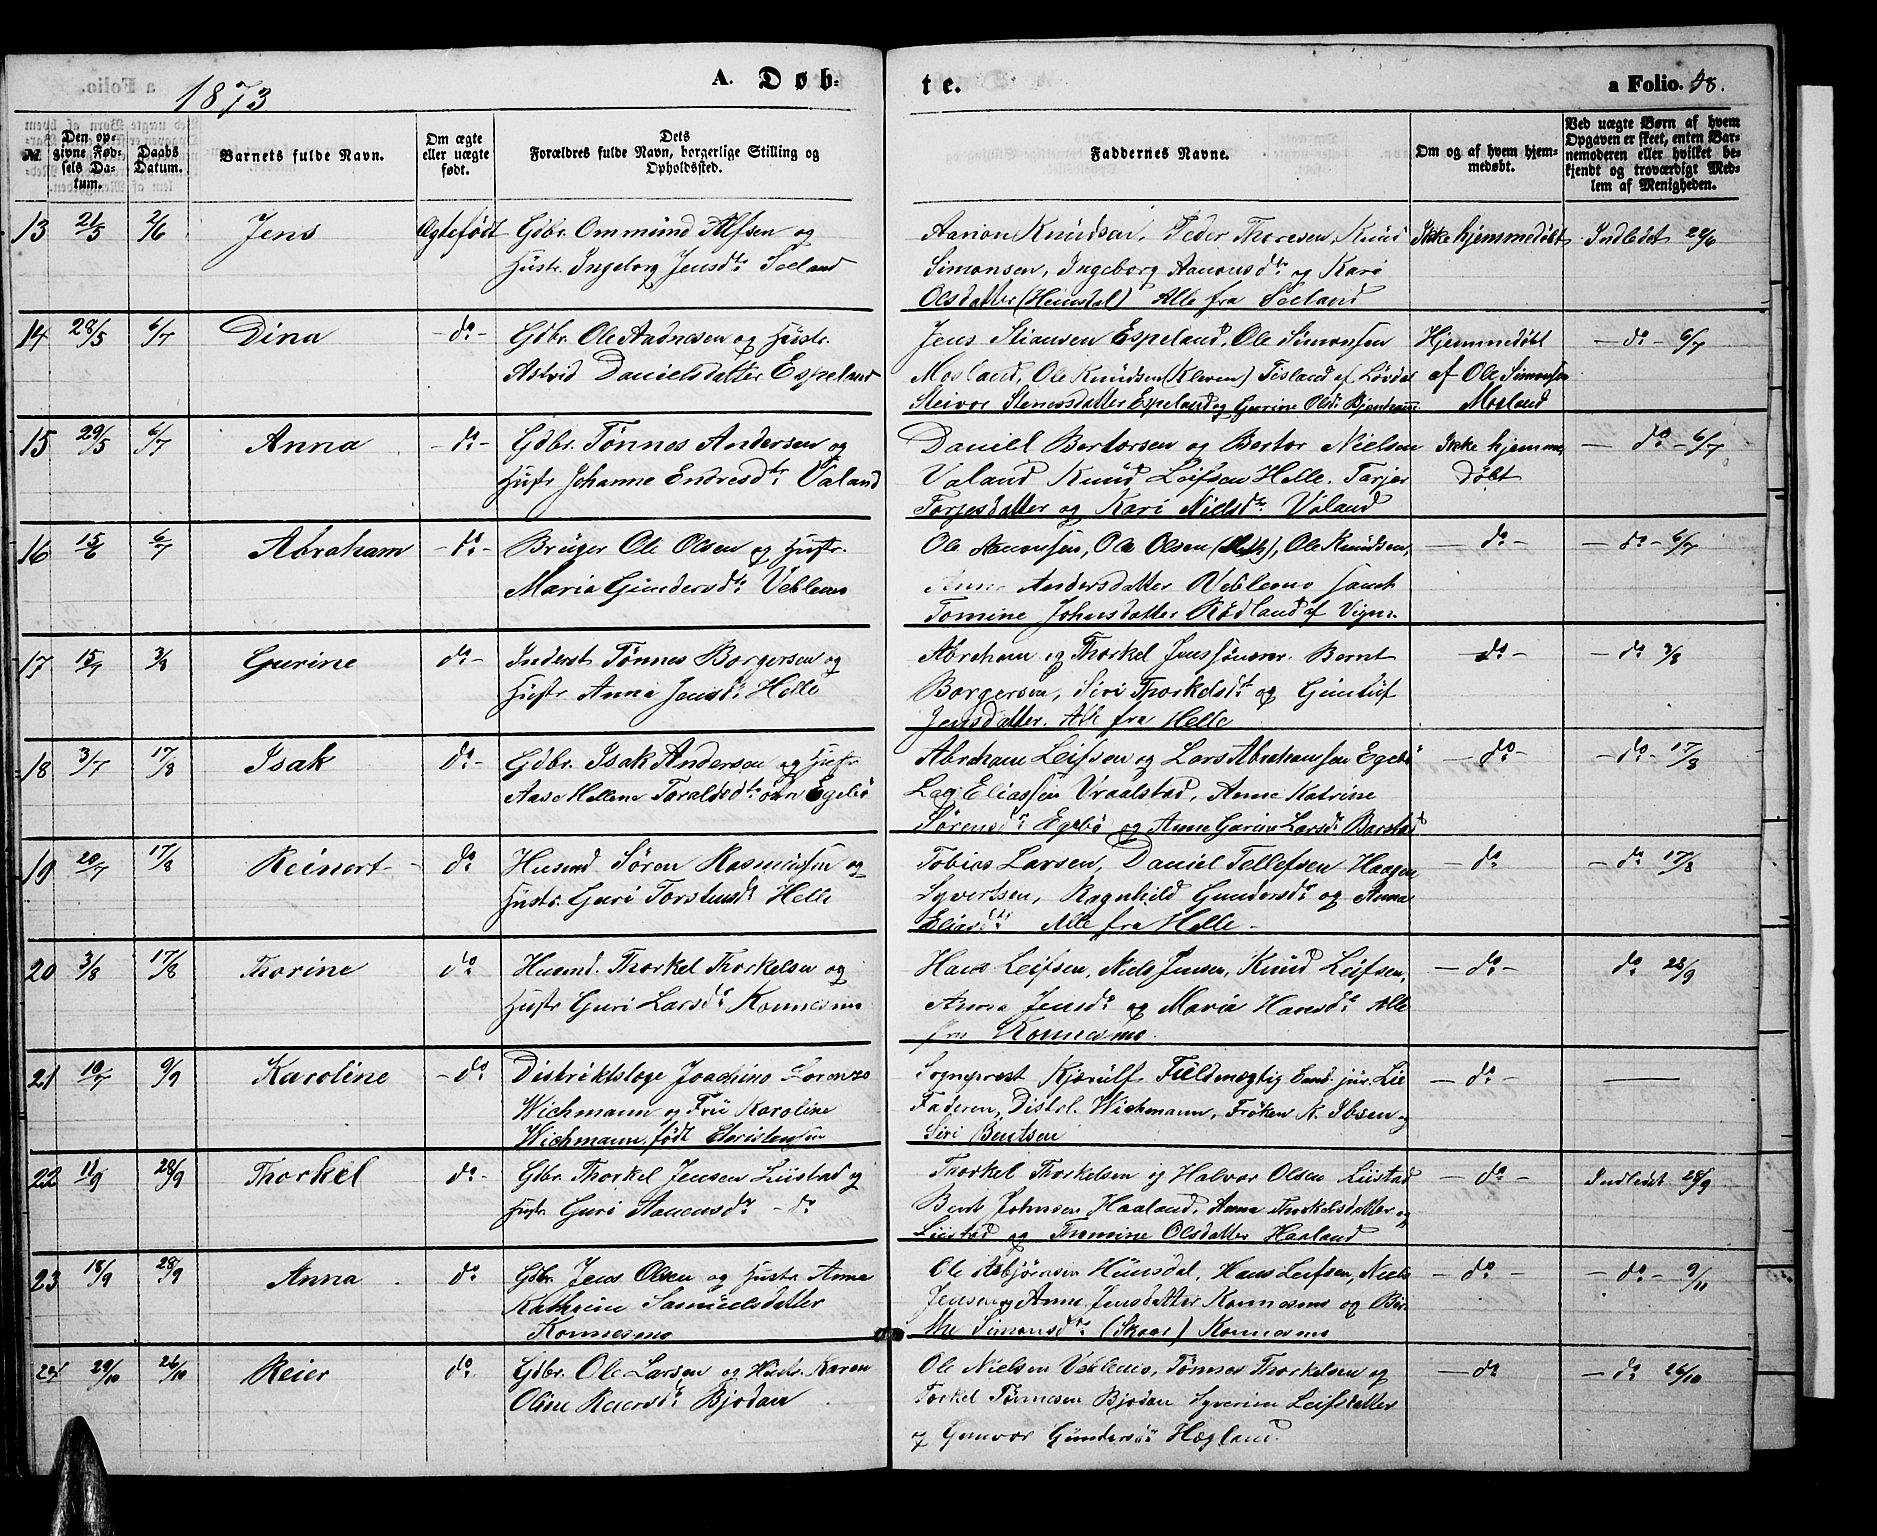 1873
A. Døb-
te.
a Folio. 48.
№
Den opgivne Fødsels Datum.
Daabs Datum.
Barnets fulde Navn.
Om ægte eller uægte født.
Dets Forældres fulde Navn, borgerlige Stilling og Opholdssted.
Faddernes Navne.
Om og af hvem hjemmedøbt.
Ved uægte Børn af hvem Opgaven er skeet, enten Barnemoderen eller hvilket bekjendt og troværdigt Medlem af Menigheden.
13 21/5 2/6 Jens Ægtefødt Gdbr. Ommund Alfsen og
Hustr. Ingeborg Jensdtr Seeland
Aanon Knudsen, Peder Thoresen, Knud
Simonsen, Ingeborg Aanonsdtr og Kari
Olsdatter (Heimdal) Alle fra Seeland
Ikke hjemmedøbt Indledet 20/6
14 28/5 6/7 Dina - do - Gdbr. Ole Aadnesen og Hustr.
Astrid Danielsdatter Espeland
Jens Stiansen Espeland, Ole Simonsen
Mosland, Ole Knudsen (Kleven) Fisland af Løvdal
Steivor Stenersdatter Espeland og Gurine Olsdtr
Hjemmedøbt
af Ole Simonsen
Mosland
- do - 6/7
15 29/5 6/7 Anna - do - Gdbr. Tønnes Andersen og
Hustr Johanne Endresdtr Valand
Daniel Bertorsen og Bertor Nielsen
Valand Knud Leifsen Helle. Tarjer
Torgesdatter og Kari Nielsdtr Valand
Ikke hjemme
døbt
- do - 6/7
16 15/6 6/7 Abraham - do - Bruger Ole Olsen og Hustr.
Maria Gundersdtr Veblemo
Ole Aanonsen, Ole Olsen, Ole Knudsen,
Anna Andersdatter Veblemo samt
Tomine Johnsdatter Rødland af Vigm.
- do - - do - 6/7
17 15/7 3/8 Gurine do - Inderst Tønnes Borgersen og
Hustr Anna Jensdtr Helle
Abraham og Thorkel Jenssønner. Bernt
Borgersen, Siri Thorkelsdtr og Gunluf
Jensdatter. Alle fra Helle
- do - - do 3/8
18 3/7 17/8 Isak do - Gdbr. Isak Andersen og Hustr
Aase Hellene Taraldsdtr øvre Egebø
Abraham Leifsen og Lars Abrahamsen Egebø
Lag. Eliassen Vraalstad, Anne Katrine
Sørensdtr Egebø og Anne Gurine Larsdtr Barstad
- do - - do - 17/8
19 20/7 17/8 Reinert - do Husmd Søren Rasmussen og
Hustr. Guri Torstensdtr Helle
Tobias Larsen, Daniel Tellefsen Haagen
Syvertsen, Ragnhild Gundersdtr og Anna
Eliasdtr Alle fra Helle -
- do - do 17/8
20 3/8 17/8 Thorine do Husmd. Thorkel Thorkelsen og
Hustr Guri Larsdtr Konnesmo
Hans Leifsen, Niels Jensen, Knud Leifsen,
Anna Jensdtr og Maria Hansdtr Alle
fra Konnesmo.
- do - do 28/9
21 10/7 9/9 Karoline - do Distriktslæge Joachim Lorenzo
Wichmann og Fru Karoline
Wichmann, født Christensen
Sogneprest Kjerulf Fuldmægtig Cand. jur. Lie
Faderen, Distrl. Wichmann, Frøken K. Ibsen og
Siri Bentsen
- do -
22 11/9 28/9 Thorkel do - Gdbr. Thorkel Jensen Liistad og
Hustr. Guri Aanensdtr - do
Thorkel Thorkelsen og Halvor Olsen Liistad
Bent Johnsen Haaland, Anna Thorkelsdatter
Liistad og Thomine Olsdatter Haaland
- do - Indledet 28/9
23 18/9 28/9 Anna do Gdbr. Jens Olsen og Hustr Anna
Kathrine Samuelsdatter
Konnesmo
Ole Asbjørnsen Hunsdal, Hans Leifsen, Niels
Jensen og Anne Jensdatter Konnesmo og Bir-
the Simonsdtr (Skaar) Konnesmo
- do - - do - 9/11
24 29/10 26/10 Reier do Gdbr. Ole Larsen og Hustr. Karen
Oline Reiersdtr Bjodan
Ole Nielsen Veblemo, Tønnes Thorkelsen og
Torkel Tønnesen Bjodan Syverine Leifsdatter
og Gunvor Gundersdtr Hægland.
- do - do 26/10